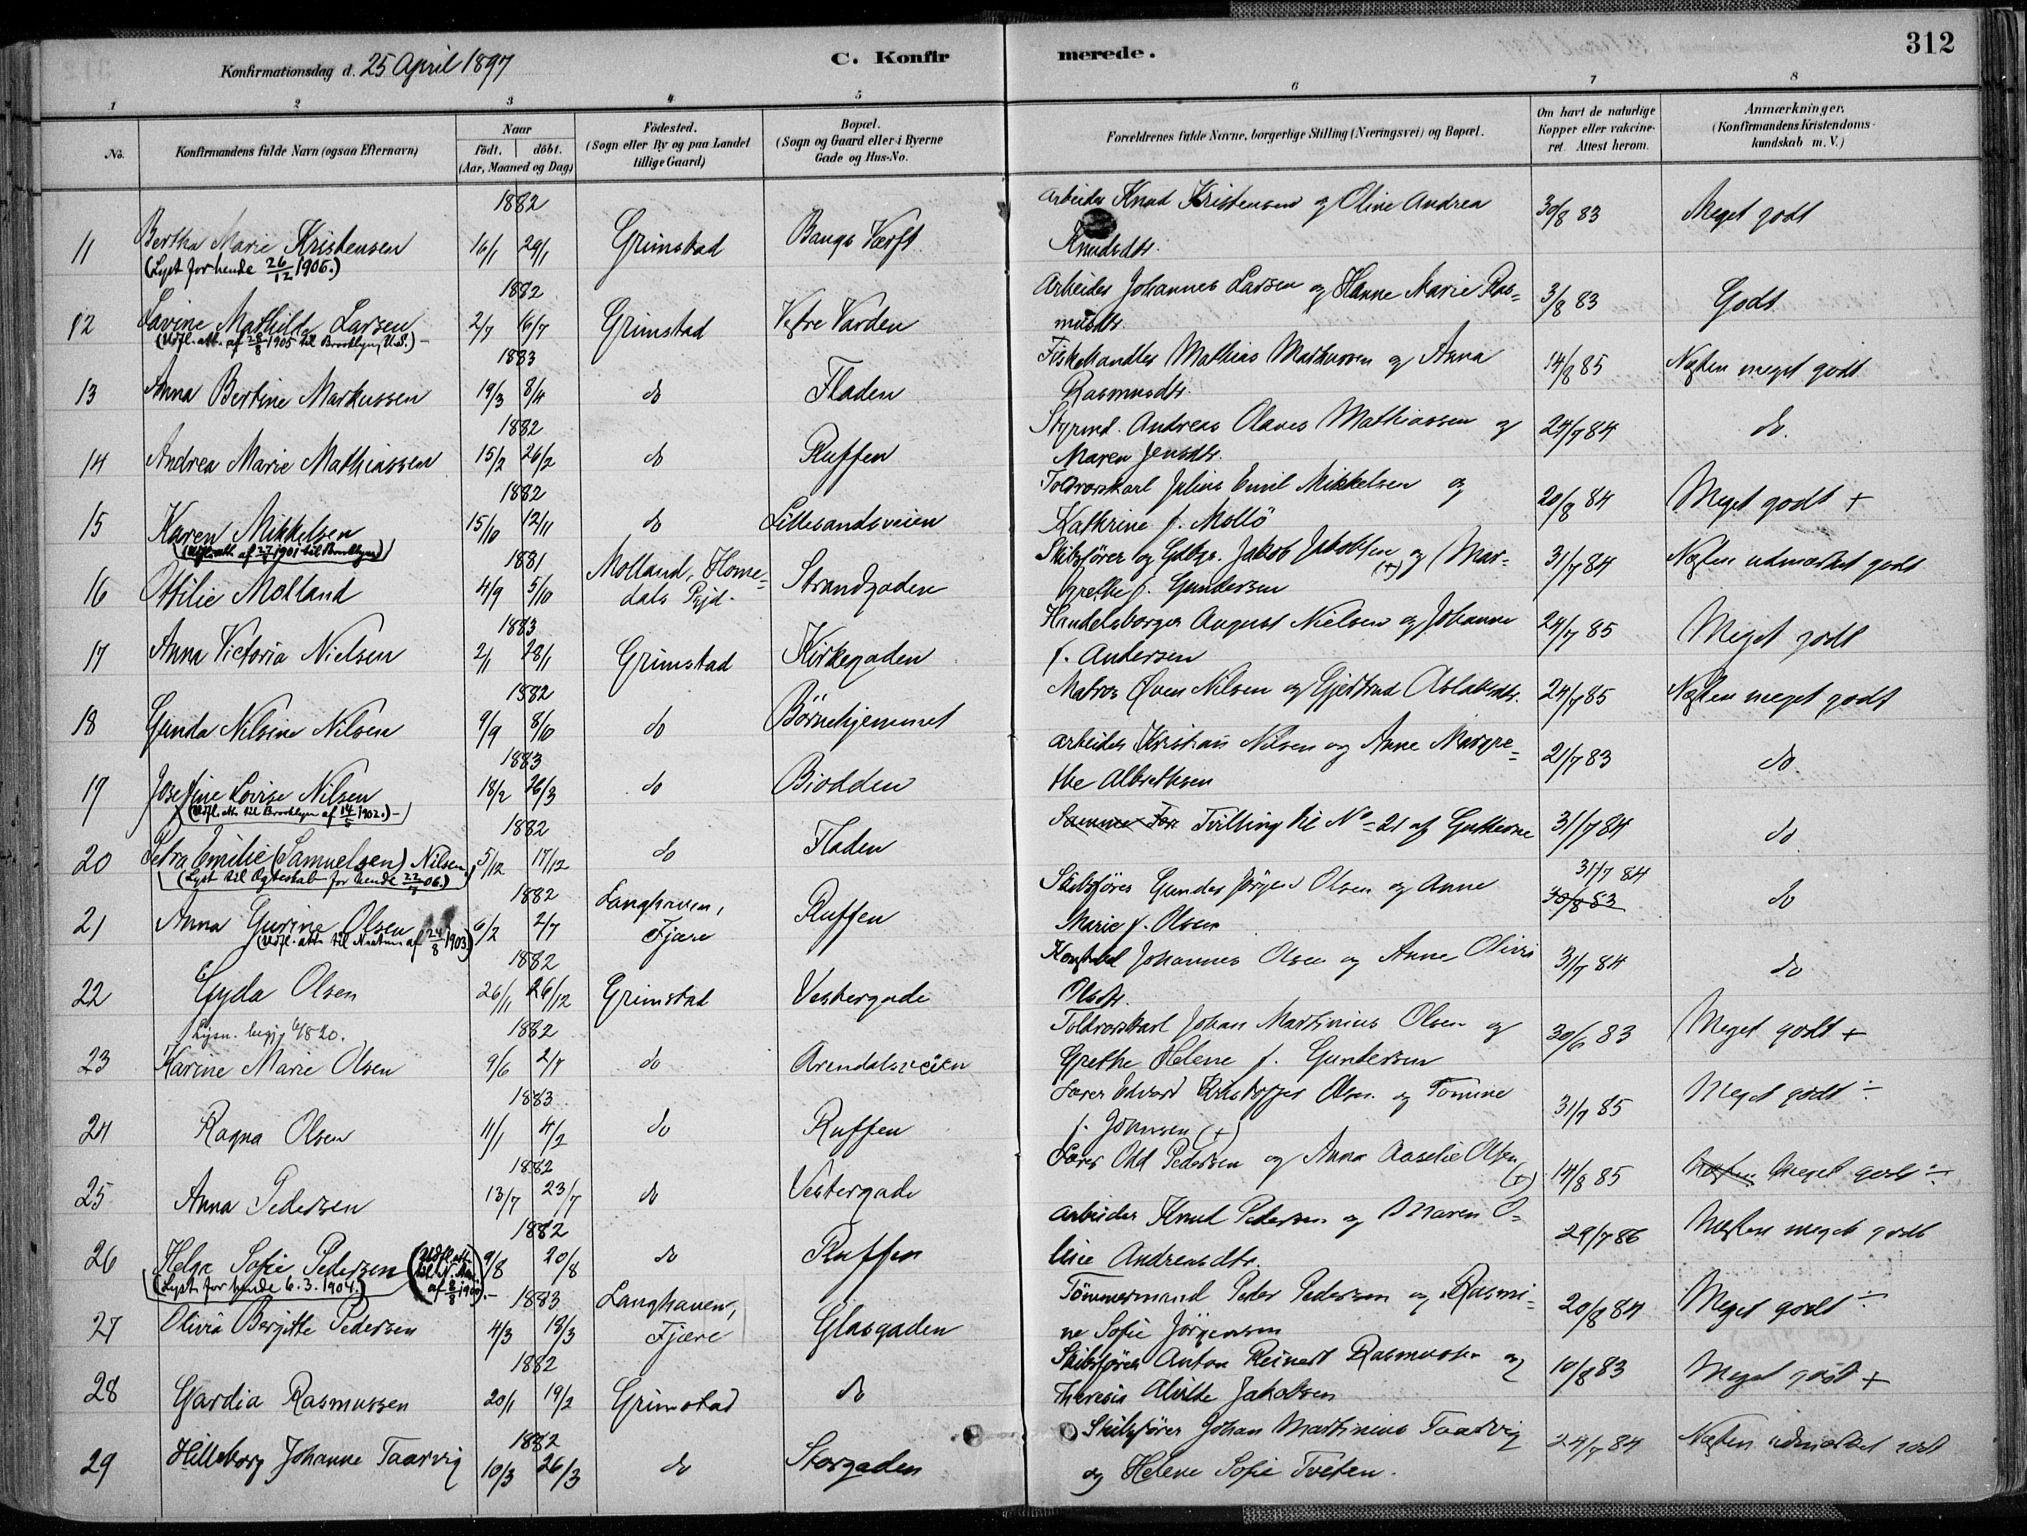 312
Konfirmationsdag d. 25 April 1897
C. Konfirmerede.
1 2 3 4 5 6 7 8
No.
Konfirmandens fulde Navn (ogsaa Efternavn)
Naar
födt. döbt.
(Aar, Maaned og Dag)
Födested.
(Sogn eller By og paa Landet
tillige Gaard)
Bopæl.
(Sogn og Gaard eller i Byerne
Gade og Hus-No.
Forældrenes fulde Navne, borgerlige Stilling (Næringsvei) og Bopæl.
Om havt de naturlige
Kopper eller vakcine-
ret. Attest herom.
Anmærkninger.
(Konfirmandens Kristendoms-
kundskab m. V.)
1882
11 Bertha Marie Kristensen 16/1 29/1 Grimstad Bangs Værft Arbeider Knud Kristensen og Oline Andrea 30/8 83 Meget godt
Knudsdtr.
(Lyst for hende 26/12 1906.)
1882
12 Lavine Mathilde Larsen 2/7 16/7 Grimstad Vestre Varden Arbeider Johannes Larsen og Hanne Marie Ras- 3/8 83 Godt
musdtr.
(Udfl. att. af 28/8 1905 til Brooklyn, U.S.)-
1883
13 Anna Bertine Markussen 19/3 8/4 do Fladen Fiskehandler Mathias Markussen og Anna 14/8 85 Næsten meget godt
Rasmusdtr.
1882
14 Andrea Marie Mathiassen 15/2 26/2 do Ruffen Styrmd. Andreas Olaves Mathiassen og 24/7 84 do.
Maren Jensdtr.
1882
15 Karen Mikkelsen 15/10 12/11 do Lillesandsveien Toldrorskarl Julius Emil Mikkelsen og 20/8 84 Meget godt +
Kathrine f. Mollö
1881
16 Ottilie Molland 4/9 5/10 Molland, Home- Strandgaden Skibsförer og Gdbgr. Jakob Jakobsen (+) og Mar- 31/7 84 Næsten udmærket godt
dals Pgjd. grethe f. Gundersen
1883
17 Anna Victoria Nielsen 2/1 28/1 Grimstad Kirkegaden Handelsborger August Nielsen og Johanne 24/7 85 Meget godt
f. Andersen
1882
18 Gunda Nilsine Nilsen 9/9 8/10 do Börnehjemmet Matros Øven Nilsen og Gjertrud Aslaksdtr. 24/7 85 Næsten meget godt
1883
19 Josefine Lovise Nilsen 18/2 26/3 do Biodden Arbeider Kristian Nilsen og Anne Margre- 21/7 83 do
the Albretsen
(Udfl. att. til Brooklyn af 14/5 1902.)-
1882
20 Petra Emilie (Samuelsen) Nilsen 5/12 17/12 do Fladen Tvilling til No 21 af Gutterne 31/7 84 do
(Lyst til Ægteskab for hende 06.)
1882
21 Anna Gurine Olsen 6/2 2/7 Langhaven, Ruffen Skibsförer Gunder Jörgen Olsen og Anne 30/8 83 31/7 84 do
Fjære Marie f. Olsen
(Udfl. att. til af 24/8 1903)
1882
22 Gyda Olsen 26/11 26/12 Grimstad Vestergade Johannes Olsen og Anne 31/7 84 do
Olsdtr.
Lysn. begj. 20.
1882
23 Karine Marie Olsen 9/6 2/7 do Arendalsveien Toldrorskarl Johan Martinius Olsen og 30/6 83 Meget godt +
Grethe Helene f. Gundersen
1883
24 Ragna Olsen 11/1 4/2 do Ruffen Edvard Olsen og Tomine 31/7 85 Meget godt ÷
f. Jonsen (+)
1882
25 Anna Pedersen 13/7 23/7 do Vestergade Pedersen og Anna Olsen (+) 14/8 85 Næsten Meget godt ÷
1882
26 Helga Sofie Pedersen 9/8 20/8 do Ruffen Arbeider Knud Pedersen og Maren O- 29/7 86 Næsten meget godt
line Andreasdtr.
(Lyst for hende 6.3.1904.)
1883
27 Olivia Bergitte Pedersen 4/3 18/3 Langhaven, Glasgaden Tömmermand Peder Pedersen og Rasmi- 20/8 84 Meget godt ÷
Fjære ne Sofie Jörgensen
1882
28 Gardia Rasmussen 20/1 19/2 Grimstad do Skibsförer Anton Reinert Rasmussen og 10/8 83 Meget godt +
Theresia Alvilde Jakobsen
1882
29 Hilleborg Johanne Taarvig 10/3 26/3 do Storgaden Skibsförer Johan Martinius Taarvig 24/7 84 Næsten udmærket godt
og Helene Sofie Tveten.